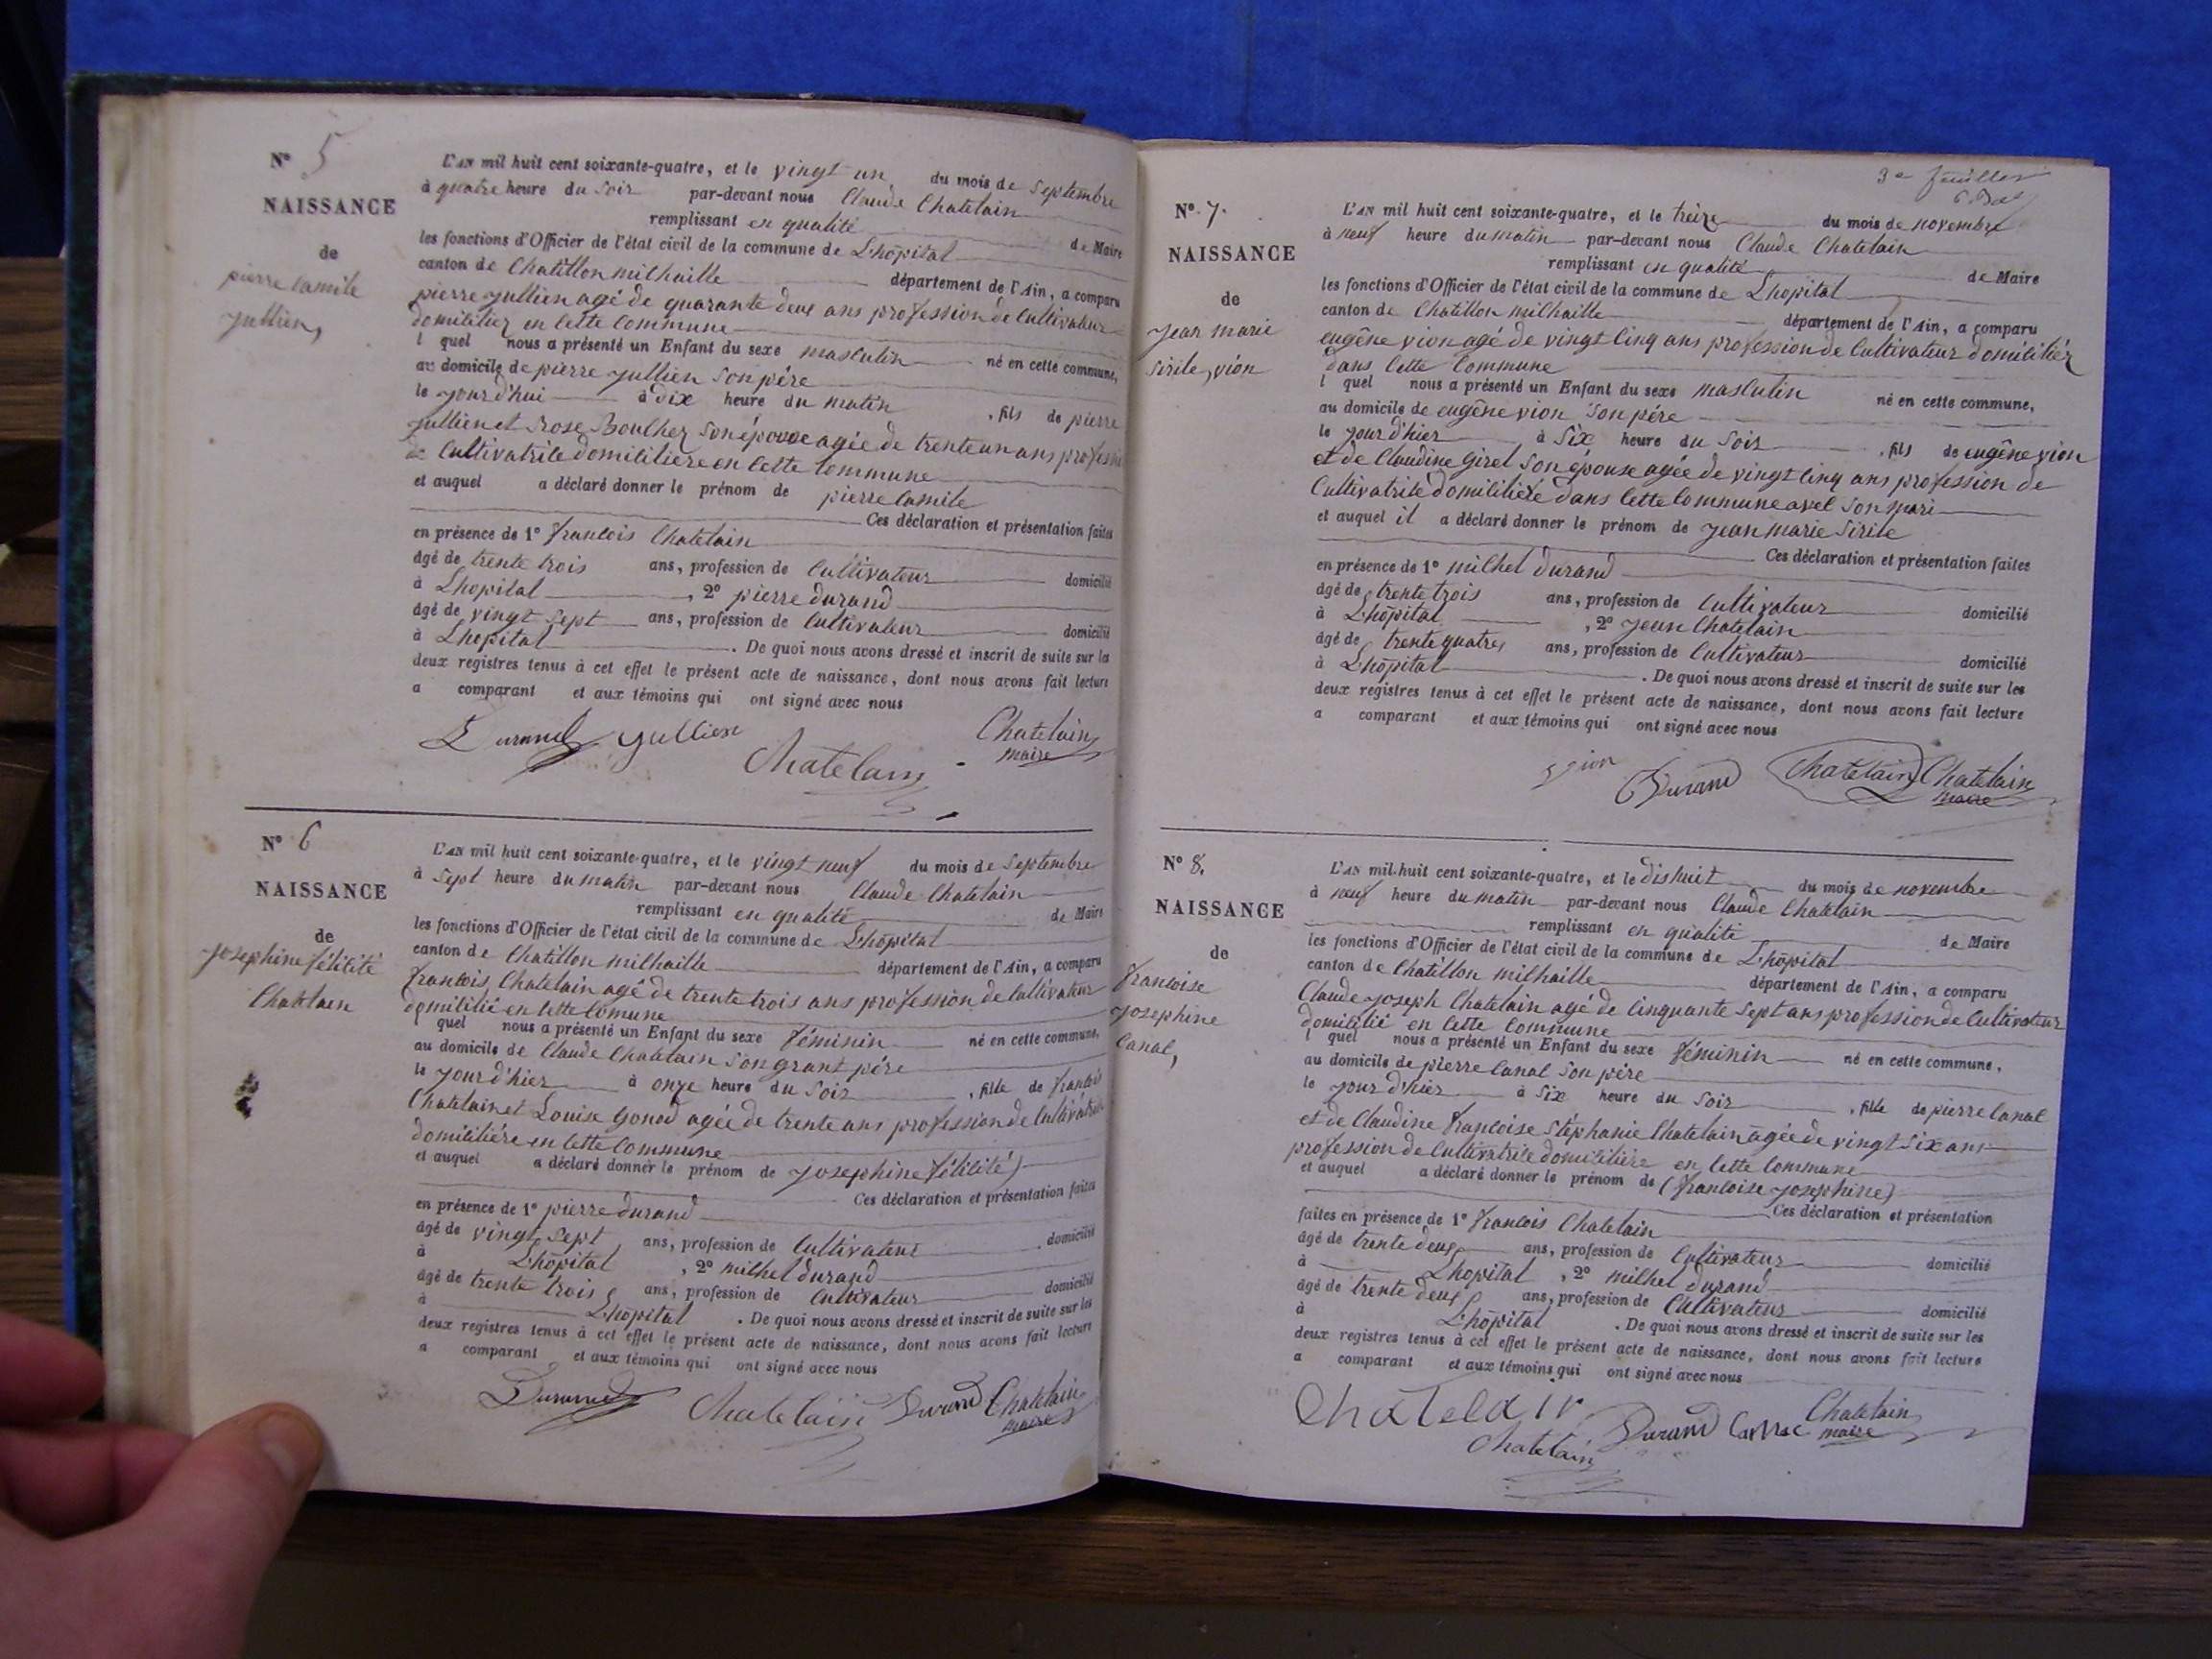 Nº 5
NAISSANCE
de
pierre Camile
jullien,
L'AN mil huit cent soixante-quatre, et le vingt un du mois de Septembre
à quatre heure du Soir par-devant nous Claude Chatelain
remplissant en qualité de Maire
les fonctions d'Officier de l'état civil de la commune de L'hôpital
canton de Chatillon milhaille département de l'Ain, a comparu
pierre jullien agé de quarante deux ans profession de Cultivateur
domicilier en Cette Commune
l quel nous a présenté un Enfant du sexe masculin né en cette commune,
au domicile de pierre jullien son père
le jourd'hui à dix heure du matin, fils de pierre
jullien et Rose Boulhez son épouse agée de trente un ans profession
de Cultivatrice domicilière en Cette Commune
et auquel a déclaré donner le prénom de pierre Camile
Ces déclaration et présentation faites
en présence de 1º francois Chatelain
âgé de trente trois ans, profession de Cultivateur domicilié
à Lhopital, 2º pierre durand
âgé de vingt sept ans, profession de Cultivateur domicilié
à Lhopital. De quoi nous avons dressé et inscrit de suite sur les
deux registres tenus à cet effet le présent acte de naissance, dont nous avons fait lecture
a comparant et aux témoins qui ont signé avec nous
Durand jullien Chatelain Chatelain
maire
Nº 6
NAISSANCE
de
josephine félicité
Chatelain
L'AN mil huit cent soixante-quatre, et le vingt neuf du mois de Septembre
à Sept heure du matin par-devant nous Claude Chatelain
remplissant en qualité de Maire
les fonctions d'Officier de l'état civil de la commune de L'hôpital
canton de Chatillon milhaille département de l'Ain, a comparu
francois Chatelain agé de trente trois ans profession de Cultivateur
domicilié en Cette Comune
l quel nous a présenté un Enfant du sexe féminin né en cette commune,
au domicile de Claude Chatelain son grant père
le jourd'hier à onze heure du Soir, fille de francois
Chatelain et Louise gonod agée de trente ans profession de Cultivatrice
domicilière en Cette Commune
et auquel a déclaré donner le prénom de josephine félicité)
Ces déclaration et présentation faites
en présence de 1º pierre durand
âgé de vingt sept ans, profession de Cultivateur domicilié
à L'hôpital, 2º milhel durand
âgé de trente trois ans, profession de Cultivateur domicilié
à L'hôpital. De quoi nous avons dressé et inscrit de suite sur les
deux registres tenus à cet effet le présent acte de naissance, dont nous avons fait lecture
a comparant et aux témoins qui ont signé avec nous
Durand Chatelain Durand Chatelain
maire
3e feuillet
Nº 7.
NAISSANCE
de
jean marie
Sirile, vion
L'AN mil huit cent soixante-quatre, et le treize du mois de novembre
à neuf heure du matin par-devant nous Claude Chatelain
remplissant en qualité de Maire
les fonctions d'Officier de l'état civil de la commune de Lhopital
canton de Chatillon milhaille département de l'Ain, a comparu
eugêne vion agé de vingt Cinq ans profession de Cultivateur domiciliér
dans Cette Commune
l quel nous a présenté un Enfant du sexe masculin né en cette commune,
au domicile de eugêne vion son père
le jour d'hier à Six heure du Soir, fils de eugêne vion
et de Claudine Girel son épouse agée de vingt Cinq ans profession de
Cultivatrice domicilière dans Cette Commune avec son mari
et auquel il a déclaré donner le prénom de jean marie Sirile
Ces déclaration et présentation faites
en présence de 1º milhel durand
âgé de trente trois ans, profession de Cultivateur domicilié
à L'hôpital, 2º jean Chatelain
âgé de trente quatres ans, profession de Cultivateur domicilié
à L'hôpital. De quoi nous avons dressé et inscrit de suite sur les
deux registres tenus à cet effet le présent acte de naissance, dont nous avons fait lecture
a comparant et aux témoins qui ont signé avec nous
vion Durand Chatelain Chatelain
maire
Nº 8.
NAISSANCE
de
francoise
josephine
Canal,
L'AN mil-huit cent soixante-quatre, et le dishuit du mois de novembre
à neuf heure du matin par-devant nous Claude Chatelain
remplissant en qualité de Maire
les fonctions d'Officier de l'état civil de la commune de L'hôpital
canton de Chatillon milhaille département de l'Ain, a comparu
Claude joseph Chatelain agé de Cinquante Sept ans profession de Cultivateur
domicilié en Cette Commune
l quel nous a présenté un Enfant du sexe féminin né en cette commune,
au domicile de pierre Canal son père
le jour d'hier à Six heure du Soir, fille de pierre Canal
et de Claudine francoise Stéphanie Chatelain agée de vingt Six ans
profession de Cultivatrice domicilière en Cette Commune
et auquel a déclaré donner le prénom de (francoise josephine)
Ces déclaration et présentation
faites en présence de 1º francois Chatelain
âgé de trente deux ans, profession de Cultivateur domicilié
à Lhopital, 2º milhel durand
âgé de trente deux ans, profession de Cultivateur domicilié
à L'hôpital. De quoi nous avons dressé et inscrit de suite sur les
deux registres tenus à cet effet le présent acte de naissance, dont nous avons fait lecture
a comparant et aux témoins qui ont signé avec nous
Chatelain Durand Chatelain
Chatelain maire